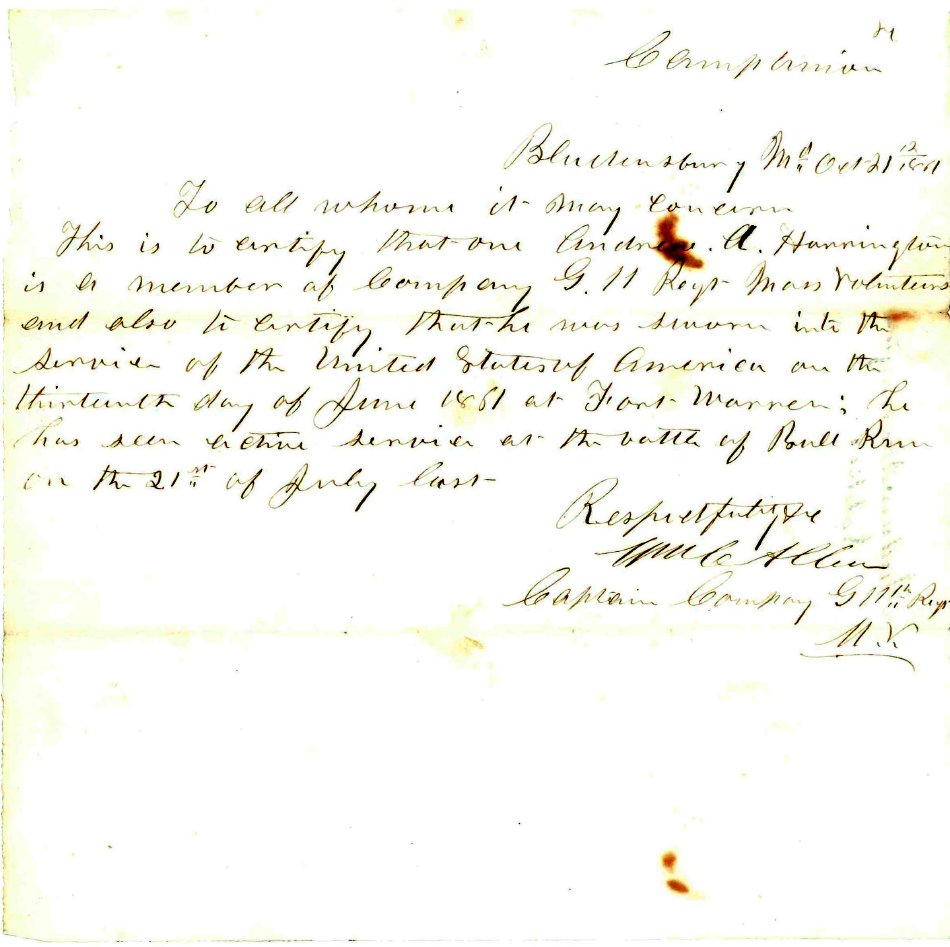 Camp Union
Bladensburg Md Oct 21
To all whome it may concern
This is to certify that one Andrew. A. Harrington
is a member of Company G. 11 Regt Mass Volunteers
and also to certify that he was sworn into the
service of the United States of America on the
thirteenth day of June 1861 at Fort Warren; he
has seen active service at the battle of Bull Run
on the 21st of July last
Respectfully &c
Wm C Allen
Captain Company G 11th Regt
M.V.